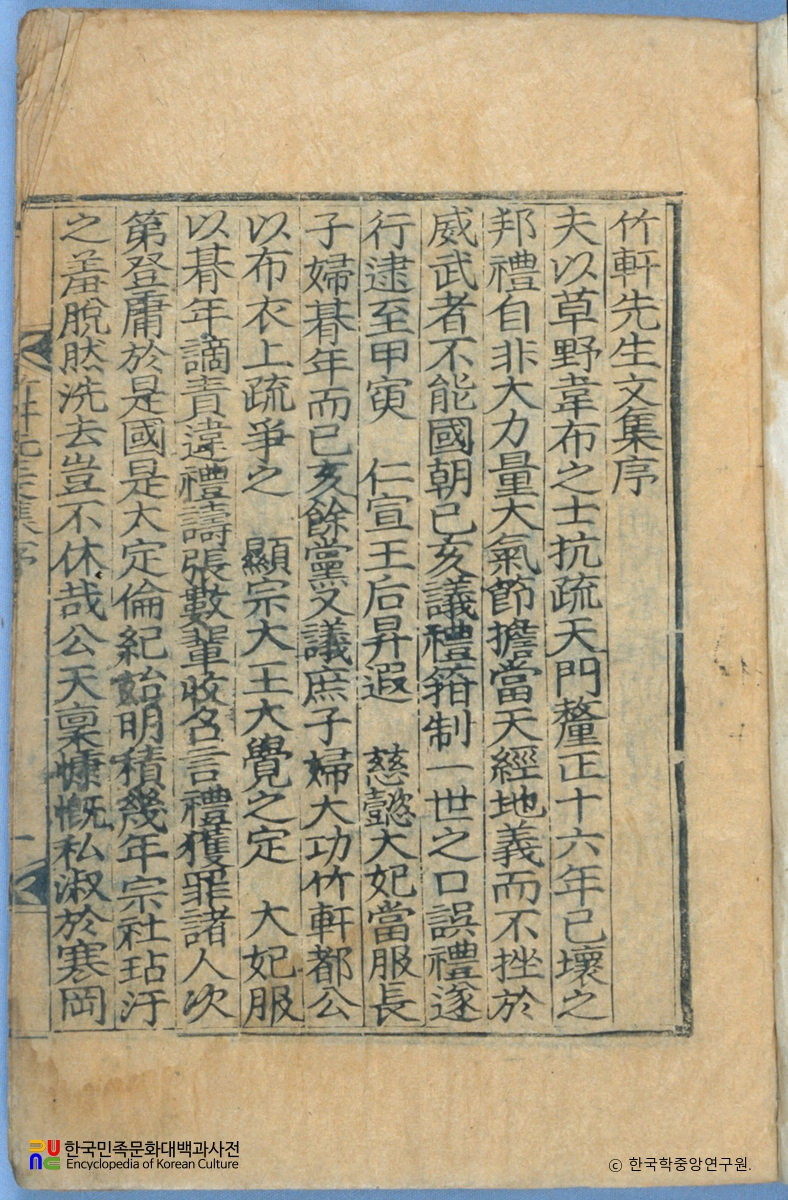 竹軒先生文集序
夫以草野韋布之士抗疏天門釐正十六年已壞之
邦禮自非大力量大氣節擔當天經地義而不挫於
威武者不能國朝己亥議禮箝制一世之口誤禮遂
行逮至甲寅 仁宣王后昇遐 慈懿大妃當服長
子婦朞年而己亥餘黨又議庶子婦大功竹軒都公
以布衣上疏爭之 顯宗大王大覺之定 大妃服
以朞年謫責違禮譸張數輩收名言禮獲罪諸人次
第登庸於是國是大定倫紀始明積幾年宗社玷汙
之羞脫然洗去豈不休哉公天稟慷慨私淑於寒岡
한국민족문화대백과사전
Encyclopedia of Korean Culture
© 한국학중앙연구원.